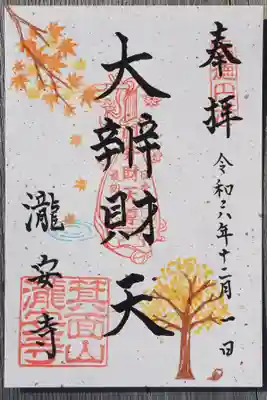 奉拝
令和六年十一月一日
大辨財天
瀧安寺
箕面山
瀧安寺